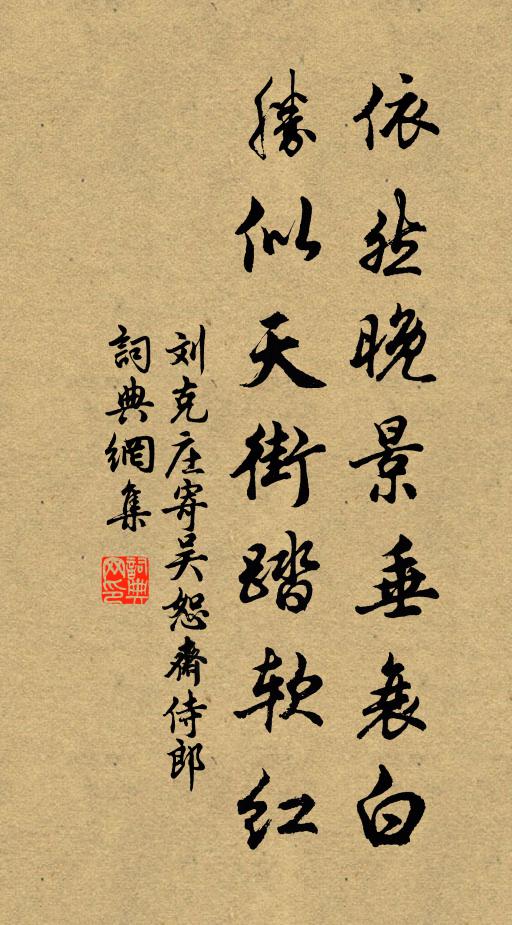 依然晚景垂衰白
勝似天街踏软红
刘克庄寄吴恕齋侍郎
詞典網集
詞典網印